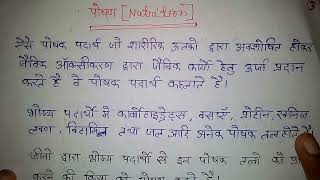 पोषण [Nutrition]
ऐसे पोषक पदार्थ जो शारीरिक ऊतकों द्वारा अवशोषित होकर
जैविक ऑक्सीकरण द्वारा जैविक कार्यो हेतु ऊर्जा प्रदान
करते है वे पोषक पदार्थ कहलाते है।
भोज्य पदार्थो में कार्बोहाइड्रेट्स, वसाएँ, प्रोटीन, खनिज
लवण, विटामिन तथा जल आदि अनेक पोषक तत्व होते है
जीवो द्वारा भोज्य पदार्थो से इन पोषक तत्वो को
करने की क्रिया को पोषण कहते है।